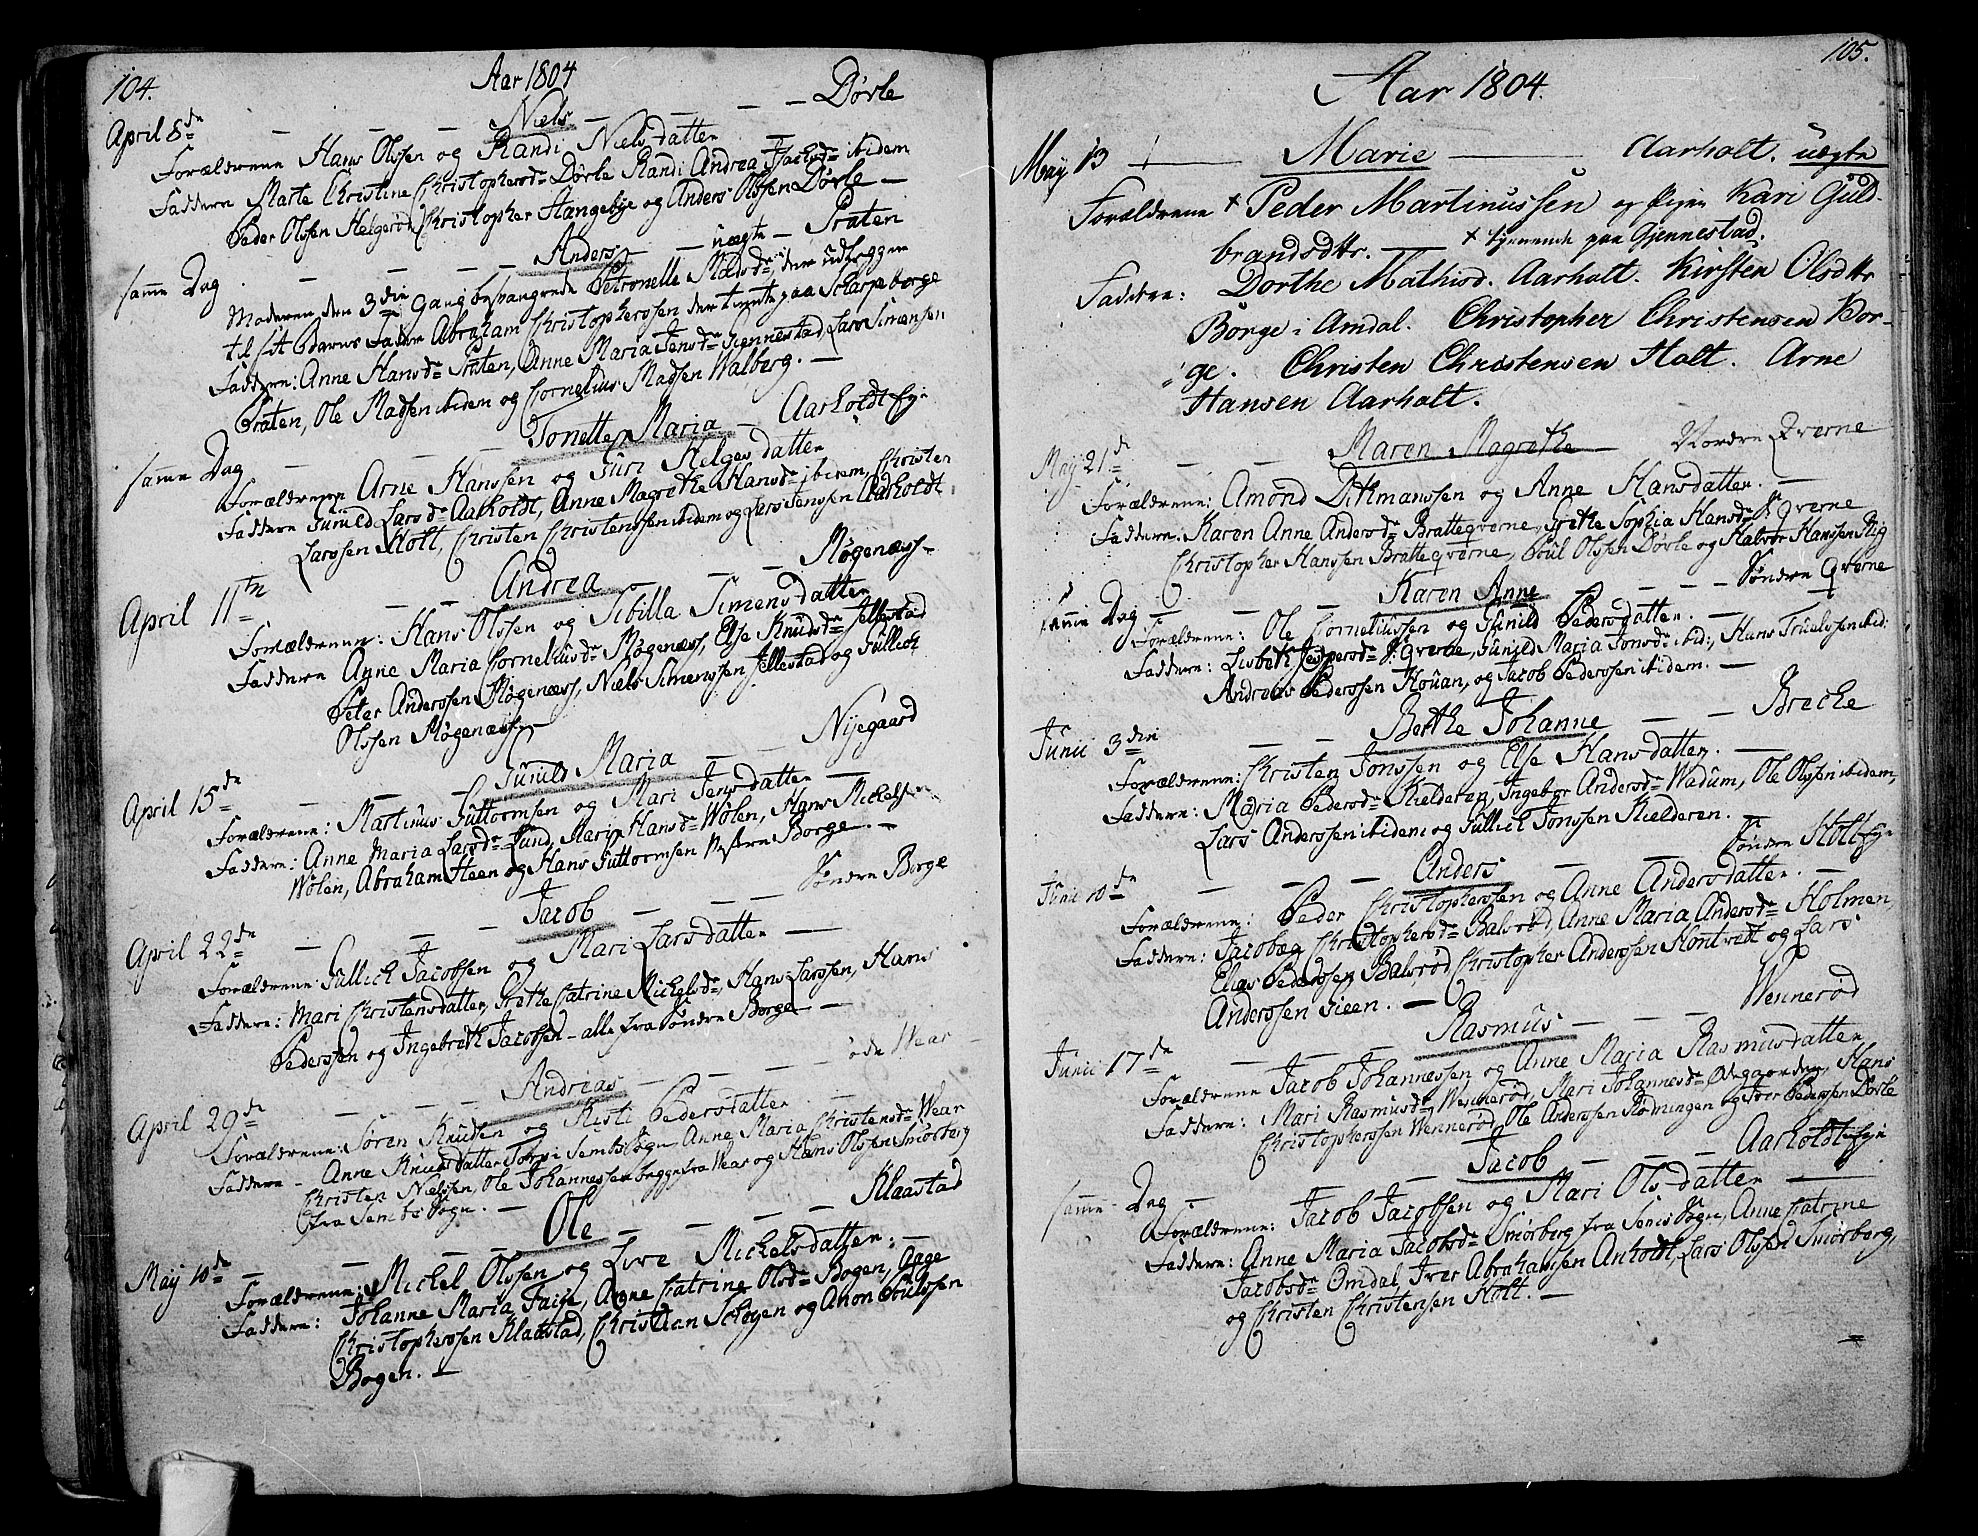 104.
Aar 1804
April 8de — — — Niels — — — Dørle
Forældrene Hans Olssen og Randi Nielsdatter
Faddere Marte Christine Christophersdr Dørle Randi Andrea Isachsdr ibidem
Peder Olssen Helgerød, Christopher Hangebye og Anders Olssen Dørle —
samme Dag — — — Anders — uægte — Fraten
Moderen, den 3die Gang besvangrede Petronelle Madsdr, der udlegger
til sit Barns Fader Abraham Christopherssen der tiente paa Scharpeborge
Faddere: Anne Hansdr Fraten, Anne Maria Jensdr Giennestad, Lars Simensen
Fraten, Ole Madsen ibidem og Cornelius Madsen Walberg. —
samme Dag — — Tonette Maria — Aarholdt Eje
Forældrene Arne Hanssen og Guri Helgesdatter
Faddere Gunild Larsdr Aarholdt, Anne Magrethe Hansdr ibidem, Christen
Larssen Holt, Christen Christenssen ibidem og Lars Jenssen Aarholdt
April 11te — — Andrea — — Møgenæss —
Forældrene: Hans Olssen og Sibilla Simensdatter
Faddere Anne Maria Corneliusdr Møgenæss, Else Knudsdr Jellestad
Peter Anderssen Møgenæss, Niels Simenssen Jellestad og Gullich
Olssen Møgenæss —
April 15de — — Gunild Maria — — Nijegaard
Forældrene: Martinus Guttormsen og Mari Jensdatter —
Faddere: Anne Maria Larsdr Lund, Mari Hansdr Wølen, Hans Mickelsen
Wølen, Abraham Heen og Hans Guttormsen Westre Borge. —
April 22de — — Jacob — — — Søndre Borge
Forældrene Gullich Jacobsen og Mari Larsdatter —
Faddere: Mari Christensdatter, Grethe Catrine Mickelsdr, Hans Larssen, Hans
Pederssen og Ingebreth Jacobsen — alle fra Søndre Borge —
April 29de — — — Andreas — — — øde Wear
Forældrene: Søren Knudsen og Kisti Pedersdatter
Faddere — Anne Knudsdatter i Sembs Sogn Anne Maria Christensdr Wear
Christen Nielssen, Ole Johannessen begge fra Wear og Hans Olssen Smørberg
fra Sembs Sogn. —
May 10de — — Ole — — — Klaastad
Forældrene: Mickel Olssen og Live Mickelsdatter: —
Faddere: Johanne Maria Faije, Anne Catrine Olsdr Bogen, Aage
Christopherssen Klaastad, Christian Schogen og Anon Poulssen
Bogen. —
105.
Aar 1804.
May 13 — Marie — Aarholt. uægte
Forældrene × Peder Martinussen og Pigen Kari Guld-
brandsdtr. — × tjenende paa Gjennestad.
Faddere: Dorthe Mathisd. Aarholt. Kirsten Olsdtr
Borge i Amdal. Christopher Christensen Bor-
ge. Christen Christensen Holt. Arne
Hansen Aarholt.
May 21de — — Maren Magrethe — Nordre Qverne
Forældrene: Amond Dithmanssen og Anne Hansdatter. —
Faddere: Karen Anne Andersdr Bratteqverne, Grethe Sophia Hansdr Qverne
Christopher Hanssen Bratteqverne, Poul Olssen Dørle og Halvor Hanssen Rig
samme Dag — — — Karen Anne — — — Søndre Qverne
Forældrene: Ole Corneliussen og Gunild Pedersdatter. —
Faddere: Lisbeth Jespersdr S: Qverne, Gunild Maria Jonsdr ibid:, Hans Truelssen ibid:
Andreas Pederssen Houan, og Jacob Pederssen ibidem. —
Junii 3die — — Berthe Johanne — — Breche
Forældrene: Christen Jonssen og Else Hansdatter. —
Faddere: Maria Pedersdr Kielderen, Ingebor Andersdr Wadum, Ole Olssen ibidem,
Lars Anderssen ibidem og Gullich Jonssen Kielderen.
Junii 10de — — — Anders — — — Søndre Holt Eje
Forældrene: Peder Christopherssen og Anne Andersdatter. —
Faddere: Jacobæa Christophersdr Balsrød, Anne Maria Andersdr Holmen
Elias Pederssen Balsrød, Christopher Anderssen Hontvedt og Lars
Anderssen Gieen. —
Junii 17de — — — Rasmus — — — Wennerød
Forældrene Jacob Johannessen og Anne Maria Rasmusdatter
Faddere: Mari Rasmusdr Wennerød, Mari Johannesdr Ødegaarden, Hans
Christopherssen Wennerød, Ole Anderssen Rødningen og Iver Pederssen Dørle
samme Dag — — — Jacob — — — Aarholdt Eje
Forældrene: Jacob Jacobsen og Mari Olsdatter —
Faddere: Anne Maria Jacobsdr Smørberg fra Sems Sogn, Anne Catrine
Jacobsdr Omdal, Iver Abrahamssen Anholdt, Lars Olssen Smørberg,
og Christen Christensen Holt. —